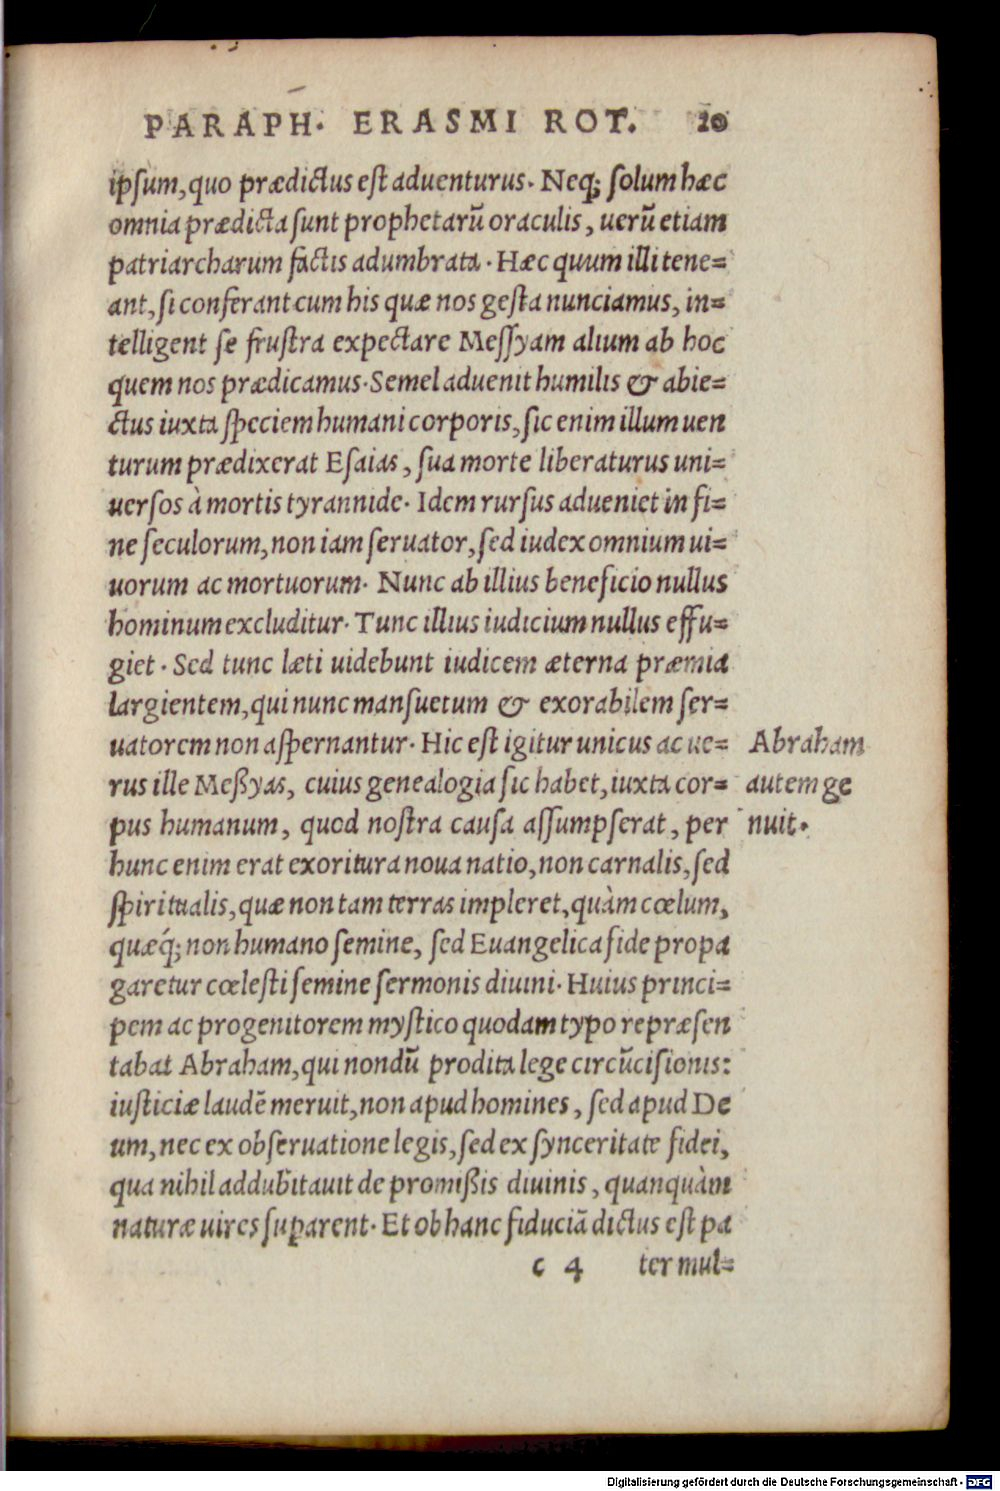 PARAPH. ERASMI ROT. 20
ipsum, quo prædictus est aduenturus. Neq; solum hæc
omnia prædicta sunt prophetarũ oraculis, uerũ etiam
patriarcharum factis adumbrata. Hæc quum illi tene=
ant, si conferant cum his quæ nos gesta nunciamus, in=
telligent se frustra expectare Messyam alium ab hoc
quem nos prædicamus. Semel aduenit humilis & abie=
ctus iuxta speciem humani corporis, sic enim illum uen
turum prædixerat Esaias, sua morte liberaturus uni=
uersos à mortis tyrannide. Idem rursus adueniet in fi=
ne seculorum, non iam seruator, sed iudex omnium ui=
uorum ac mortuorum. Nunc ab illius beneficio nullus
hominum excluditur. Tunc illius iudicium nullus effu=
giet. Sed tunc læti uidebunt iudicem æterna præmia
largientem, qui nunc mansuetum & exorabilem ser=
uatorem non aspernantur. Hic est igitur unicus ac ue=
rus ille Meßyas, cuius genealogia sic habet, iuxta cor=
pus humanum, quod nostra causa assumpserat, per
hunc enim erat exoritura noua natio, non carnalis, sed
spiritualis, quæ non tam terras impleret, quàm cœlum,
quæq́; non humano semine, sed Euangelica fide propa
garetur cœlesti semine sermonis diuini. Huius princi=
pem ac progenitorem mystico quodam typo repræsen
tabat Abraham, qui nondũ prodita lege circũcisionis:
iusticiæ laudẽ meruit, non apud homines, sed apud De
um, nec ex obseruatione legis, sed ex synceritate fidei,
qua nihil addubitauit de promißis diuinis, quanquàm
naturæ uires suparent. Et ob hanc fiduciã dictus est pa
c 4 ter mul=
Abraham
autem ge
nuit.
Digitalisierung gefördert durch die Deutsche Forschungsgemeinschaft - DFG